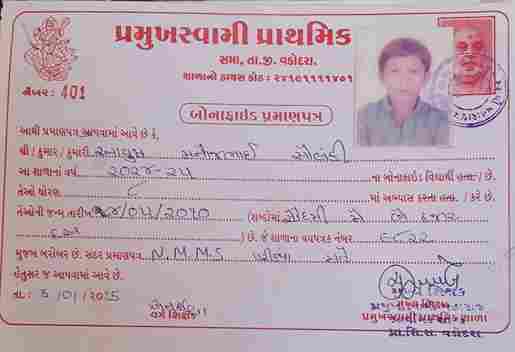 પ્રમુખસ્વામી પ્રાથમિક
સમા, તા.જી. વડોદરા.
શાળાનો ડાયસ કોડ : ૨૪૧૯૧૧૧૧૪૦૧
નંબર : 401
બોનાફાઇડ પ્રમાણપત્ર
આથી પ્રમાણપત્ર આપવામાં આવે છે કે,
શ્રી / કુમાર / કુમારી સોલંકી
આ શાળાના વર્ષ ૨૦૨૪-૨૫ ના બોનાફાઇડ વિદ્યાર્થી હતા / છે.
તેઓ ધોરણ ૮ માં અભ્યાસ કરતા હતા / કરે છે.
તેઓની જન્મ તારીખ ૧૪/૦૫/૨૦૧૦ (શબ્દોમાં ચૌદમી મે બે હજાર
દસ ) છે. જે શાળાના વયપત્રક નંબર ૬૬૨૨
મુજબ બરોબર છે. સદર પ્રમાણપત્ર N.M.M.S પરીક્ષા માટે
હેતુસર જ આપવામાં આવે છે.
તા. : 3/01/2025
વર્ગ શિક્ષક
પ્રમુખસ્વામી પ્રાથમિક શાળા
પ્રા.શિ.સ. વડોદરા